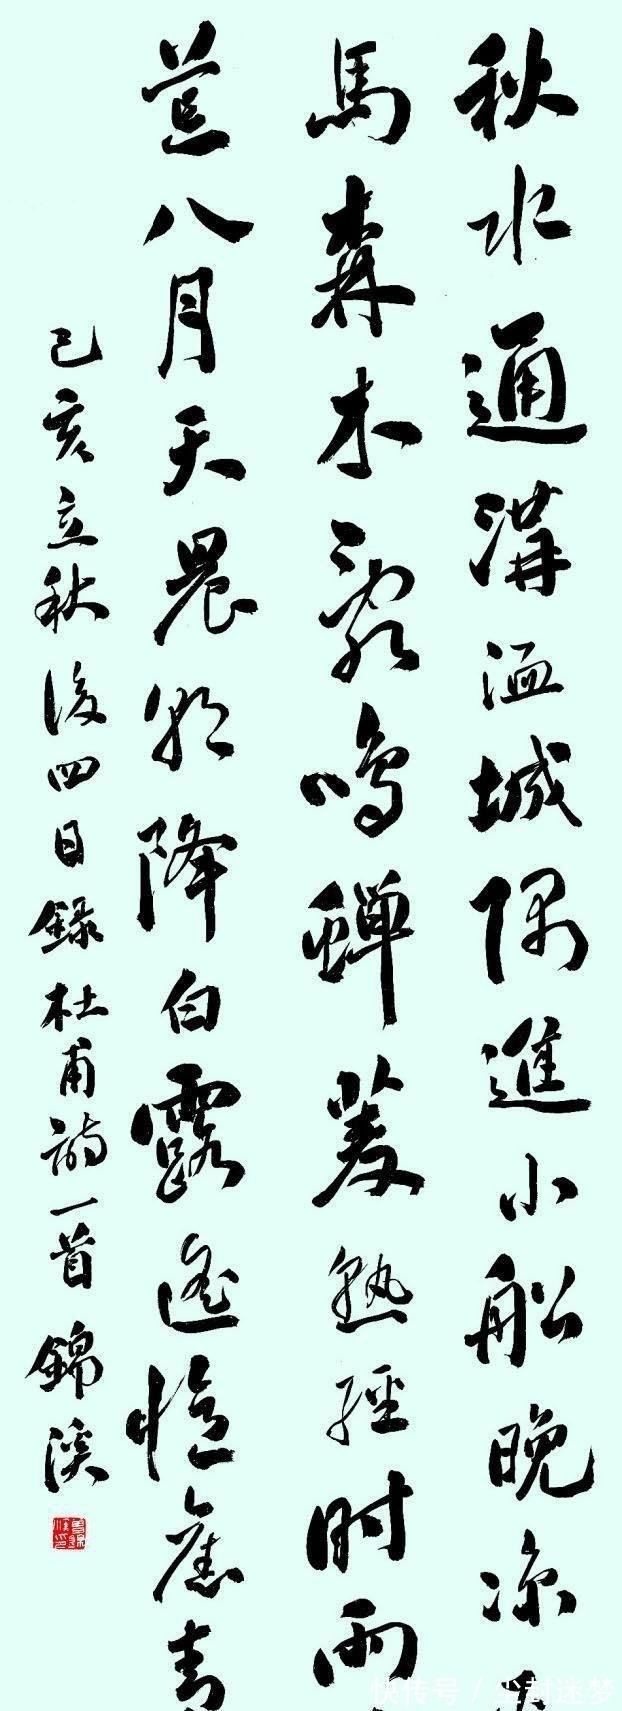 秋水通溝洫城隅進小船晚涼
馬森木亂鳴蟬菱熟經时雨
荒八月天晨朝降白露遙憶舊青
己亥立秋後四日錄杜甫詩一首 錦溪
快传号 / 尘封迷梦